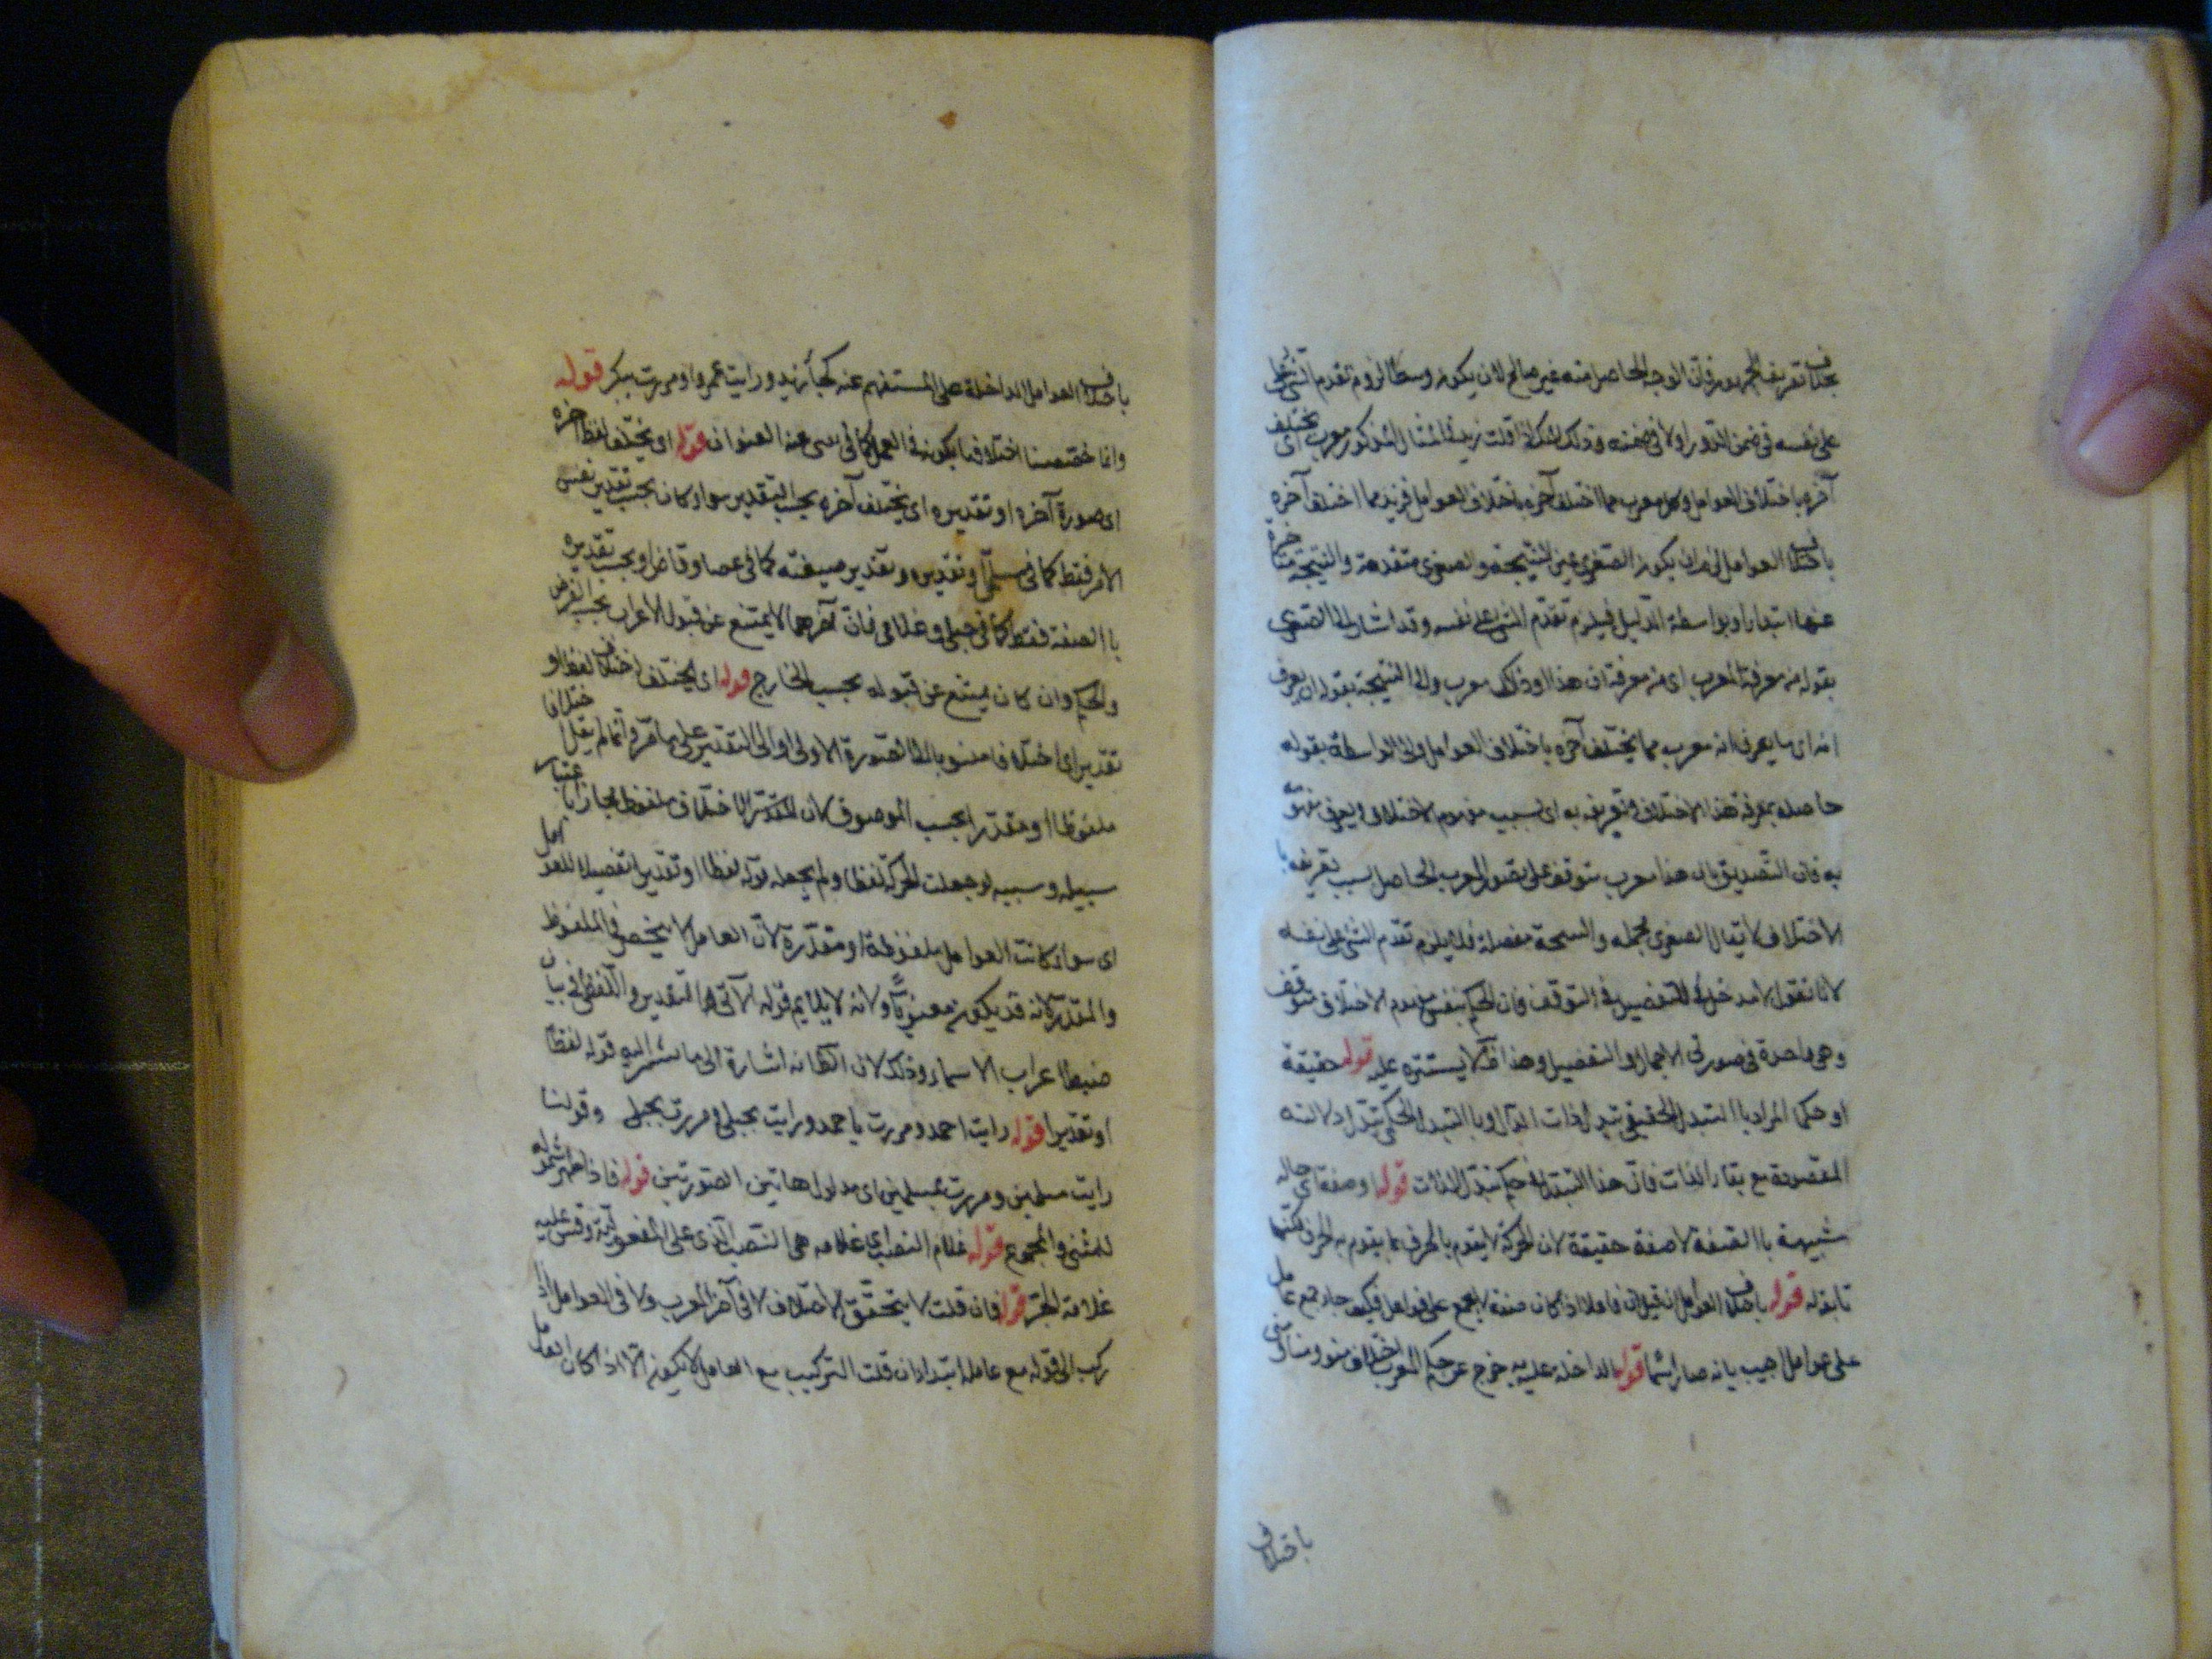 بخلاف تعريف الجمهور فان الوجه الحاصل منه غير صالح لان يكون وسطا لزوم تقدم الشئ
على نفسه في ضمن الدور اولا في ضمنه وذلك لانك اذا قلت زيد في المثال المذكور معرب اى يختلف
آخره باختلاف العوامل وكل معرب مما اختلف آخره باختلاف العوامل فزيد مما اختلف آخره
باختلاف العوامل لزم ان يكون الصغرى عين النتيجة والصغرى متقدمة والنتيجة متأخرة
عنها ابتداء او بواسطة الدليل فيلزم تقدم الشئ على نفسه وقد اشار الى الصغرى
بقوله من معرفة المعرب اى من معرفة ان هذا او ذلك معرب والى النتيجة بقوله ان يعرف
انه اى ما يعرف انه معرب مما يختلف آخره باختلاف العوامل والى الواسطة بقوله
حاصله بمعرفة هذا الاختلاف وتعريفه به اى بسبب مفهوم الاختلاف
به فان التصديق بان هذا معرب متوقف على تصور المعرب الحاصل بسبب تعريفه با
الاختلاف لا يقال الصغرى مجملة والنتيجة مفصلة فلا يلزم تقدم الشئ على نفسه
لانا نقول لا مدخل للتفصيل في التوقف فان الحكم بنفس مفهوم الاختلاف متوقف
وهى واحدة في صورتى الاجمال والتفصيل وهذا عليه قوله حقيقة
او حكما المراد با التبدل الحقيقي تبدل ذات الدال وبا التبدل الحكمى تبدل دلالته
المقصودة مع بقاء الذات فان هذا التبدل في حكم تبدل الذات قوله او صفة اى حاله
شبيهة با الصفة لا صفة حقيقة لان الحركة لا يقوم بالحرف
قوله باختلاف العوامل ان قيل ان فاعلا اذا كان صفة لا يجمع على فواعل فكيف جاء جمع عامل
على عوامل اجيب بانه صار اسما قوله الداخلة عليه خرج عن حكم المعرب
باختلاف
باختلاف العوامل الداخلة على المستفهم عنه كجاء زيد ورايت عمروا ومررت ببكر قوله
وانما خصصنا اختلافا يكون في العمل قوله اى يختلف لفظ آخره
اى صورة آخره او تقديره اى يختلف آخره بحسب التقدير سواء كان بحسب تقدير نفس
الامر فقط كما في او تقديره وتقدير صيغته كما في عصا وقاض او بحسب تقديره
با الصفة فقط كما في حبلى وغلامى فان آخرهما لا يمتنع عن قبول الاعراب بحسب الفرض
والحكم وان كان يمتنع عن قبوله بحسب الخارج قوله اى يختلف اختلاف لفظ او
تقدير اى اختلافا منسوبا الى الصورة الاولى او الى التقدير على ما مر وانما لم يقل اختلافا
ملفوظا او مقدرا بحسب الموصوف لان الاختلاف ملفوظ مجازا باعتبار
سبيله وسببه لو جعلت الحركة لفظا ولم يجعله قوله لفظا او تقديرا تفصيلا للعوامل
اى سواء كانت العوامل ملفوظة او مقدرة لان العامل لا ينحصر في الملفوظ
والمقدر لانه قد يكون معنويا ولانه لا يلايم قوله الآتى التقدير واللفظى في بيان
ضبط اعراب الاسماء وذلك لان اشارة الى ما اليه قوله لفظا
او تقديرا قوله رايت احمد ومررت باحمد ورايت بحبلى ومررت بحبلى وقولنا
رايت مسلمين ومررت بمسلمين اى مدلول هاتين الصورتين قوله فاذا
للمثنى والمجموع قوله علام النصب اى علامه هى النصب وقس عليه
علامة الجر قوله فان قلت لا يتحقق الاختلاف لا في آخر المعرب ولا في العوامل اذا
ركب الى قوله مع عامله ابتداء ان قلت التركيب مع العامل لا يكون الا اذا كان العامل